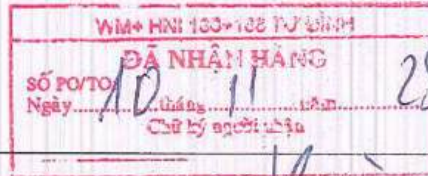 WM+ HNI 133+135 TƯ ĐÌNH
ĐÃ NHẬN HÀNG
SỐ PO/TO
Ngày 10 tháng 11 năm
Chữ ký người nhận